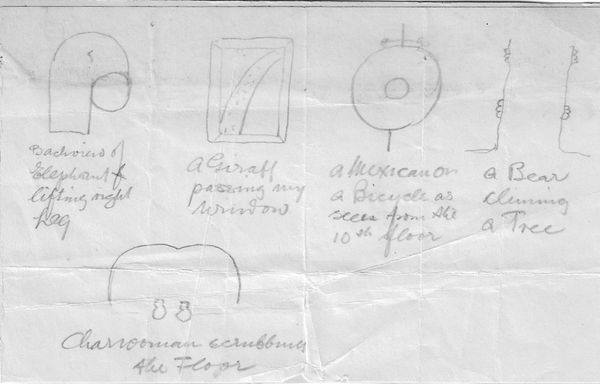 Backview of
Elephant
lifting right
Leg
a Giraff
passing my
window
a Mexican on
a Bicycle as
seen from the
10th floor
a Bear
climing
a Tree
Charwoman scrubbing
the Floor